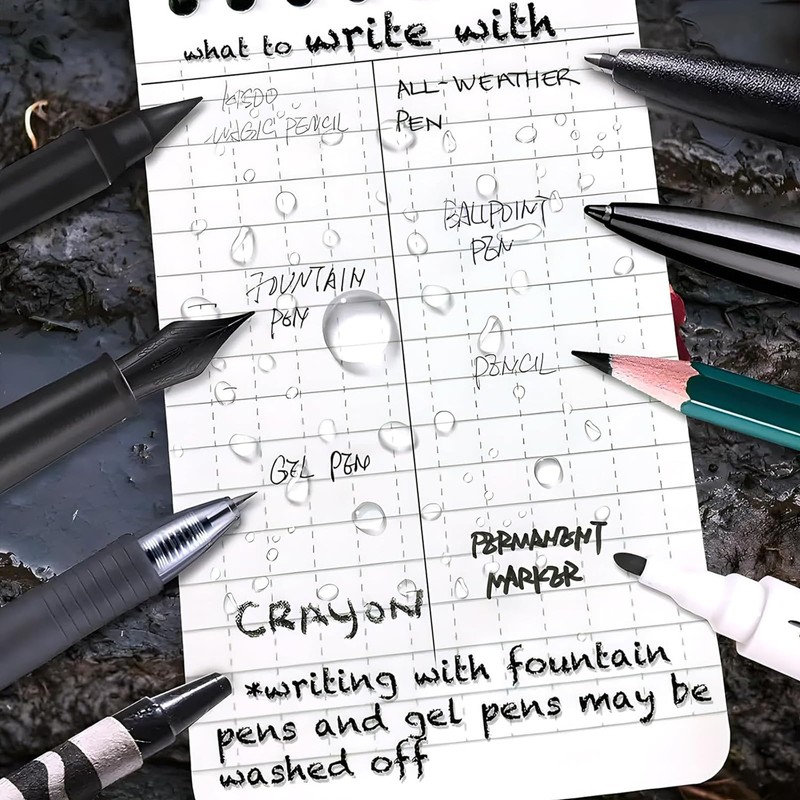 what to write with
MAGIC PENCIL
ALL-WEATHER
PEN
BALLPOINT
PEN
FOUNTAIN
PEN
PENCIL
GEL PEN
PERMANENT
MARKER
CRAYON
*writing with fountain
pens and gel pens may be
washed off